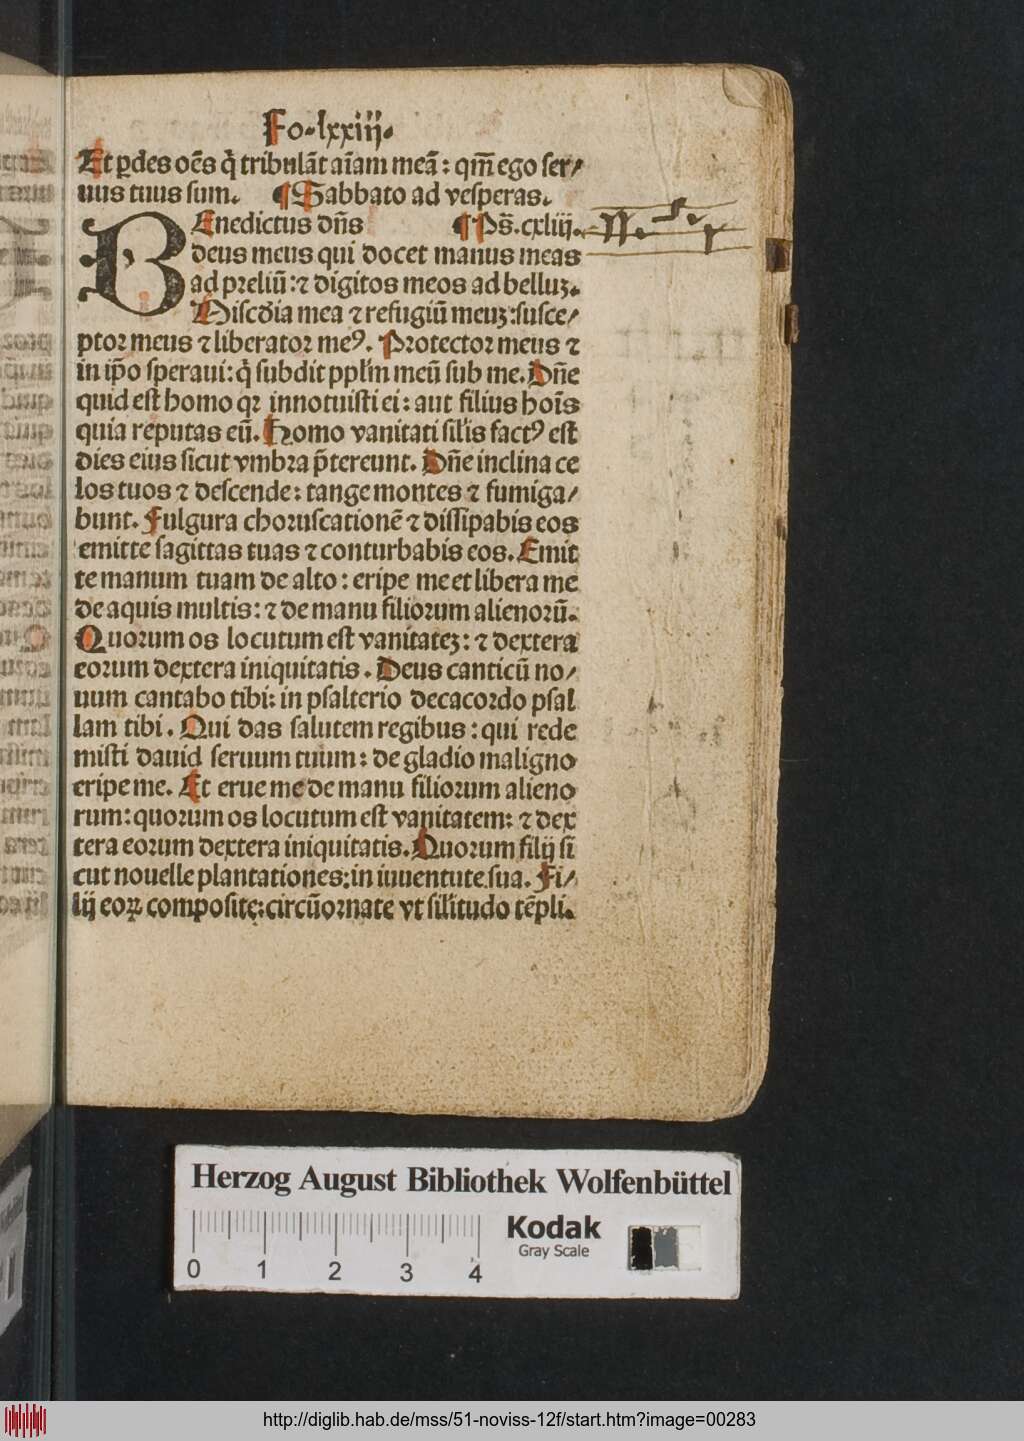 Fo·lxxiij·
Et ꝑdes oēs q̇ tribulāt aīam meā: qm̄ ego ser⸗
uus tuus sum. ¶ Sabbato ad vesperas.
BEnedictus dn̄s ¶ Ps̄. cxliij.
deus meus qui docet manus meas
ad preliū: ⁊ digitos meos ad belluꝫ.
Misc̄dia mea ⁊ refugiū meuꝫ: susce⸗
ptor meus ⁊ liberator meꝰ. Protector meus ⁊
in ip̄o speraui: q̇ subdit ppl̄m meū sub me. Dn̄e
quid est homo qꝛ innotuisti ei: aut filius hoīs
quia reputas eū. Homo vanitati sil̄is factꝰ est
dies eius sicut vmbra p̄tereunt. Dn̄e inclina ce
los tuos ⁊ descende: tange montes ⁊ fumiga⸗
bunt. Fulgura choruscationē ⁊ dissipabis eos
emitte sagittas tuas ⁊ conturbabis eos. Emit
te manum tuam de alto: eripe me et libera me
de aquis multis: ⁊ de manu filiorum alienorū.
Quorum os locutum est vanitateꝫ: ⁊ dextera
eorum dextera iniquitatis. Deus canticū no⸗
uum cantabo tibi: in psalterio decacordo psal
lam tibi. Qui das salutem regibus: qui rede
misti dauid seruum tuum: de gladio maligno
eripe me. Et erue me de manu filiorum alieno
rum: quorum os locutum est vanitatem: ⁊ dex
tera eorum dextera iniquitatis. Quorum filij si
cut nouelle plantationes: in iuuentute sua. Fi⸗
lij eoꝝ composite: circūornate vt sil̄itudo tēpli.
Herzog August Bibliothek Wolfenbüttel
Kodak
Gray Scale
0 1 2 3 4
http://diglib.hab.de/mss/51-noviss-12f/start.htm?image=00283